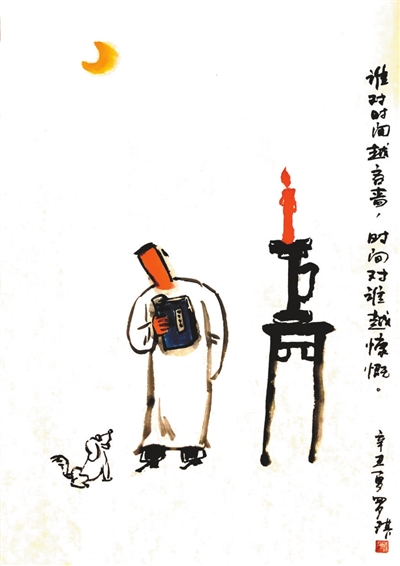 谁对时间越吝啬，时间对谁越慷慨。
辛丑夏罗琪